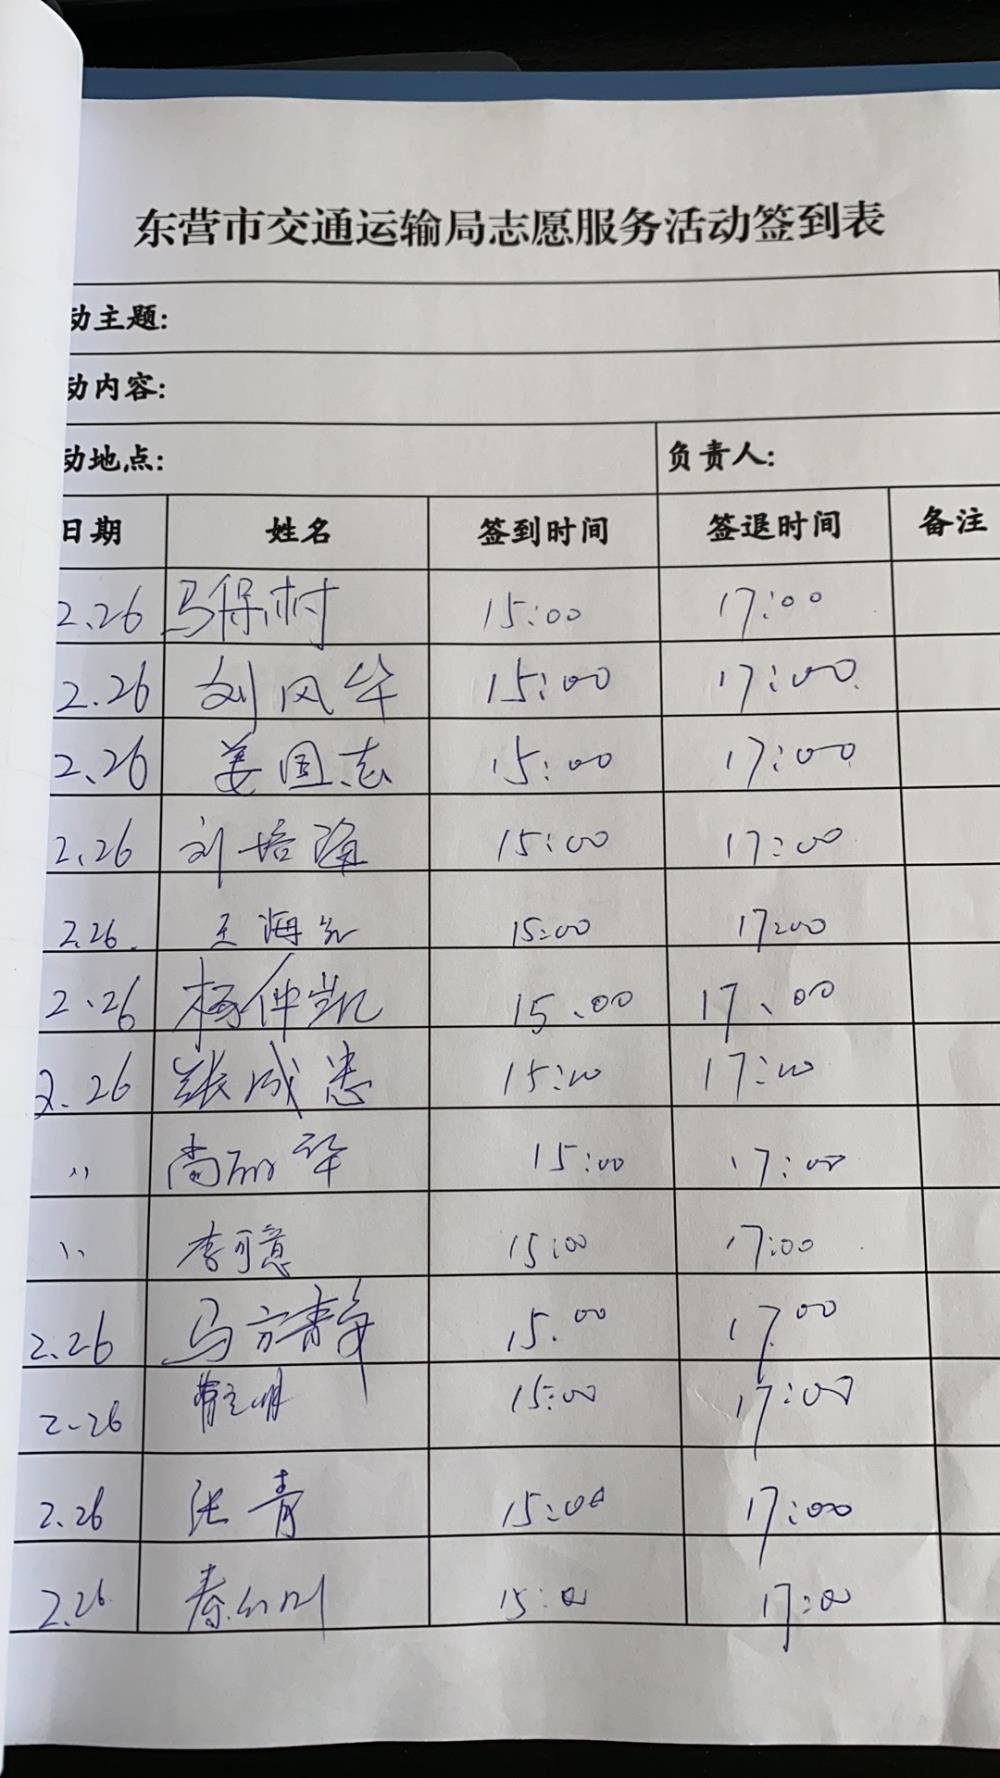 东营市交通运输局志愿服务活动签到表
动主题:
动内容:
动地点: 负责人:
日期 姓名 签到时间 签退时间 备注
2.26 马保村 15:00 17:00
2.26 刘风华 15:00 17:00
2.26 姜国志 15:00 17:00
2.26 刘培 15:00 17:00
2.26. 王海 15:00 17:00
2.26 杨仲凯 15.00 17.00
2.26 张成忠 15:00 17:00
〃 尚丽华 15:00 17:00
〃 李可意 15:00 17:00
2.26 马方静 15.00 17.00
2-26 明 15:00 17:00
2.26 张青 15:00 17:00
2.26 秦 15:00 17:00